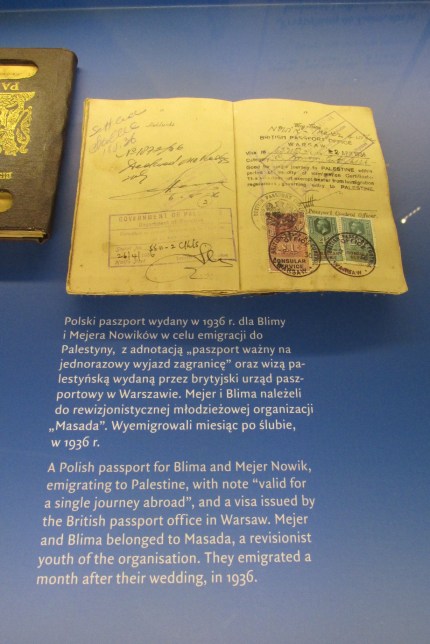 PA
BRITISH PASSPORT OFFICE
WARSAW
PALESTINE
GOVERNMENT OF PAL
CONSULAR
SERVICE
WARSAW
Polski paszport wydany w 1936 r. dla Blimy
i Mejera Nowików w celu emigracji do
Palestyny, z adnotacją „paszport ważny na
jednorazowy wyjazd zagranicę” oraz wizą pa-
lestyńską wydaną przez brytyjski urząd pasz-
portowy w Warszawie. Mejer i Blima należeli
do rewizjonistycznej młodzieżowej organizacji
„Masada”. Wyemigrowali miesiąc po ślubie,
w 1936 r.
A Polish passport for Blima and Mejer Nowik,
emigrating to Palestine, with note “valid for
a single journey abroad”, and a visa issued by
the British passport office in Warsaw. Mejer
and Blima belonged to Masada, a revisionist
youth of the organisation. They emigrated a
month after their wedding, in 1936.